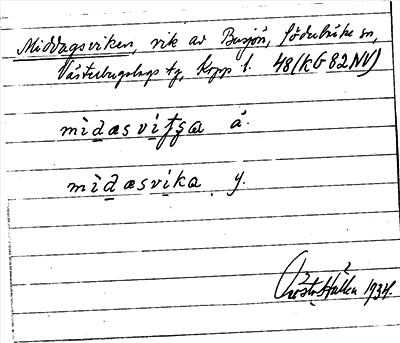 Middagsviken, vik av Busjön, Söderbärke sn,
Västerbergslags tg, Kopp. l. 48 (KG 82 NV)
midasvitʂa ä.
midasvika y.
Hallen 1934.